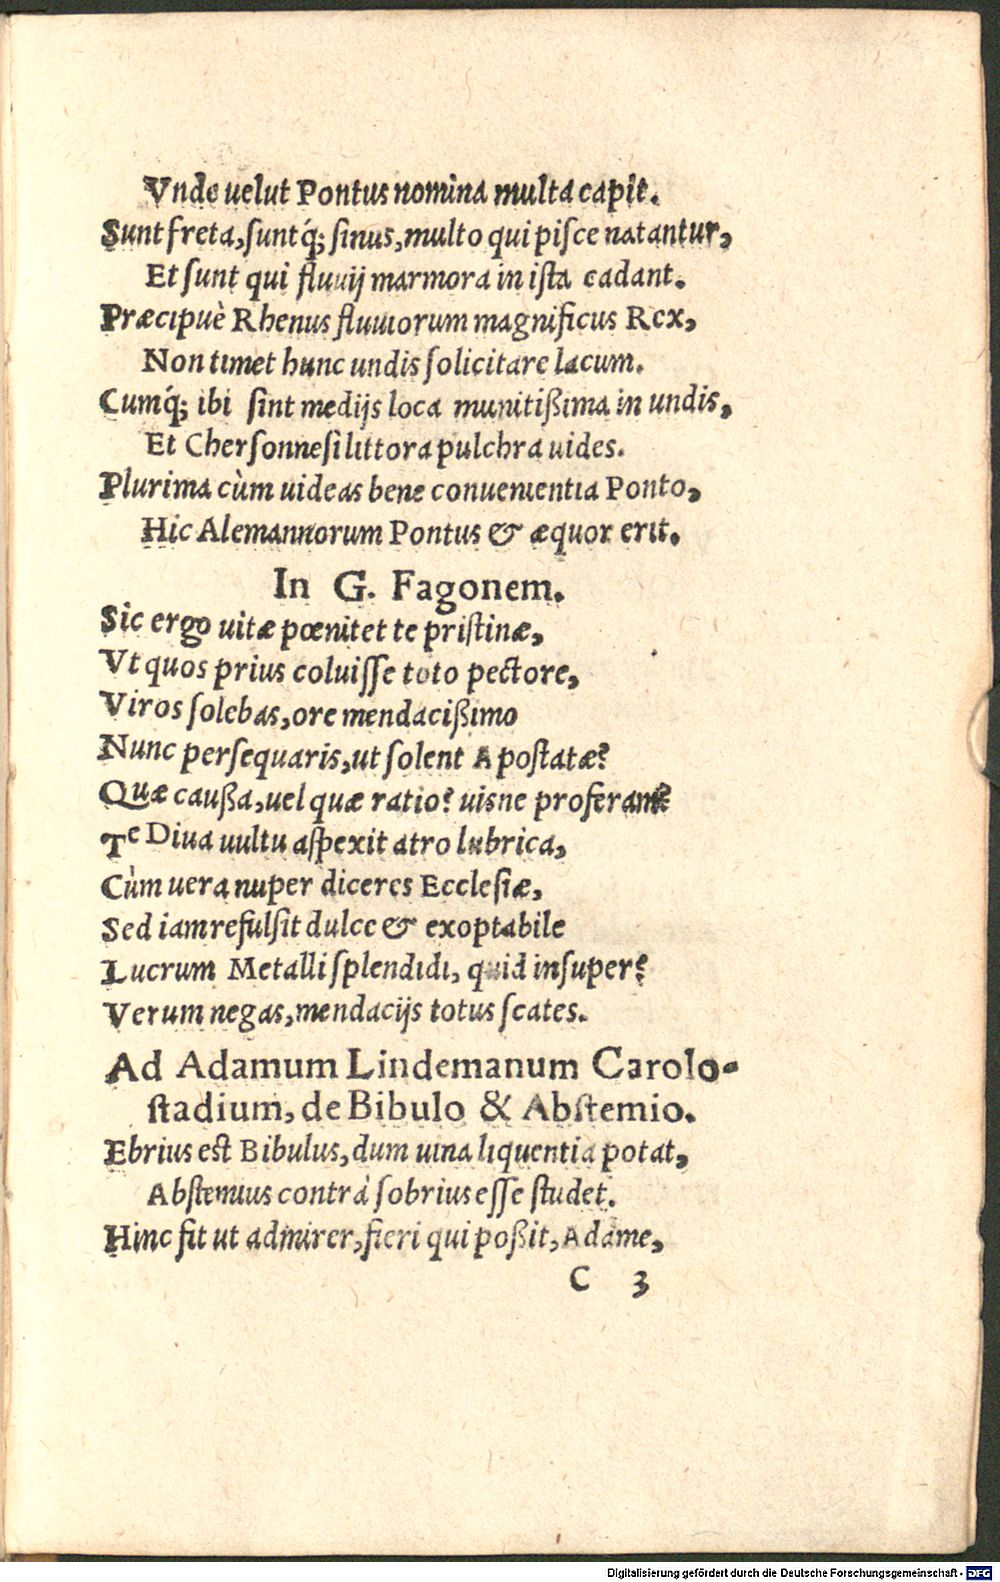 Vnde uelut Pontus nomina multa capit.
Sunt freta, suntq́; sinus, multo qui pisce natantur,
Et sunt qui fluuij marmora in ista cadant.
Præcipuè Rhenus fluuiorum magnificus Rex,
Non timet hunc undis solicitare lacum.
Cumq́; ibi sint medijs loca munitißima in undis,
Et Chersonnesi littora pulchra uides.
Plurima cùm uideas bene conuenientia Ponto,
Hic Alemannorum Pontus & æquor erit.
In G. Fagonem.
Sic ergo uitæ pœnitet te pristinæ,
Vt quos prius coluisse toto pectore,
Viros solebas, ore mendacißimo
Nunc persequaris, ut solent Apostatæ?
Quæ caußa, uel quæ ratio? uisne proferam?
Te Diua uultu aspexit atro lubrica,
Cùm uera nuper diceres Ecclesiæ,
Sed iam refulsit dulce & exoptabile
Lucrum Metalli splendidi, quid insuper?
Verum negas, mendacijs totus scates.
Ad Adamum Lindemanum Carolo-
stadium, de Bibulo & Abstemio.
Ebrius est Bibulus, dum uina liquentia potat,
Abstemius contrà sobrius esse studet.
Hinc fit ut admirer, fieri qui poßit, Adame,
C 3
Digitalisierung gefördert durch die Deutsche Forschungsgemeinschaft - DFG